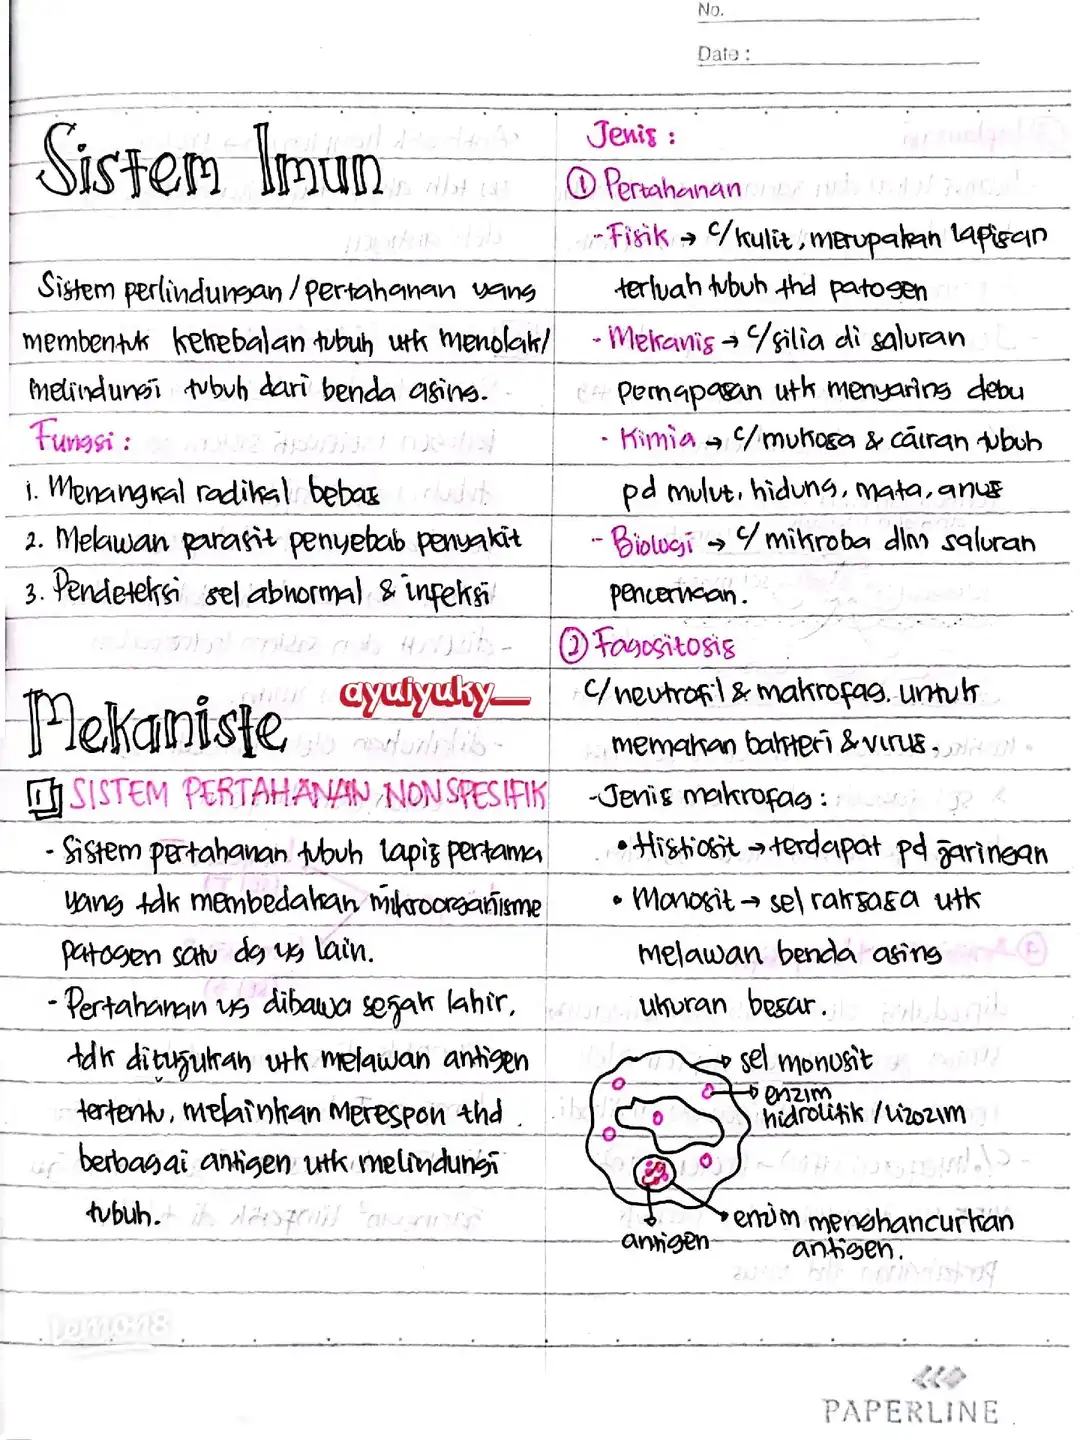 No.
Date :
Sistem Imun
Sistem perlindungan / pertahanan yang
membentuk kekebalan tubuh utk menolak/
melindungi tubuh dari benda asing.
Fungsi :
1. Menangkal radikal bebas
2. Melawan parasit penyebab penyakit
3. Pendeteksi sel abnormal & infeksi
ayulyuky__
Mekanisme
1 SISTEM PERTAHANAN NONSPESIFIK
- Sistem pertahanan tubuh lapis pertama
yang tdk membedakan mikroorganisme
patogen satu dg yg lain.
- Pertahanan yg dibawa sejak lahir,
tdk ditujukan utk melawan antigen
tertentu, melainkan merespon thd
berbagai antigen utk melindungi
tubuh.
Lemon8
Jenis :
① Pertahanan
- Fisik → c/ kulit, merupakan lapisan
terluah tubuh thd patogen
- Mekanis → c/ silia di saluran
pernapasan utk menyaring debu
- Kimia → c/ mukosa & cairan tubuh
pd mulut, hidung, mata, anus
- Biologi → c/ mikroba dlm saluran
pencernaan.
② Fagositosis
c/ neutrofil & makrofag. untuk
memakan bakteri & virus.
- Jenis makrofag :
• Histiosit → terdapat pd jaringan
• Monosit → sel raksasa utk
melawan benda asing
ukuran besar.
sel monosit
enzim
hidrolitik / lizozim
enzim menghancurkan
antigen.
antigen
PAPERLINE